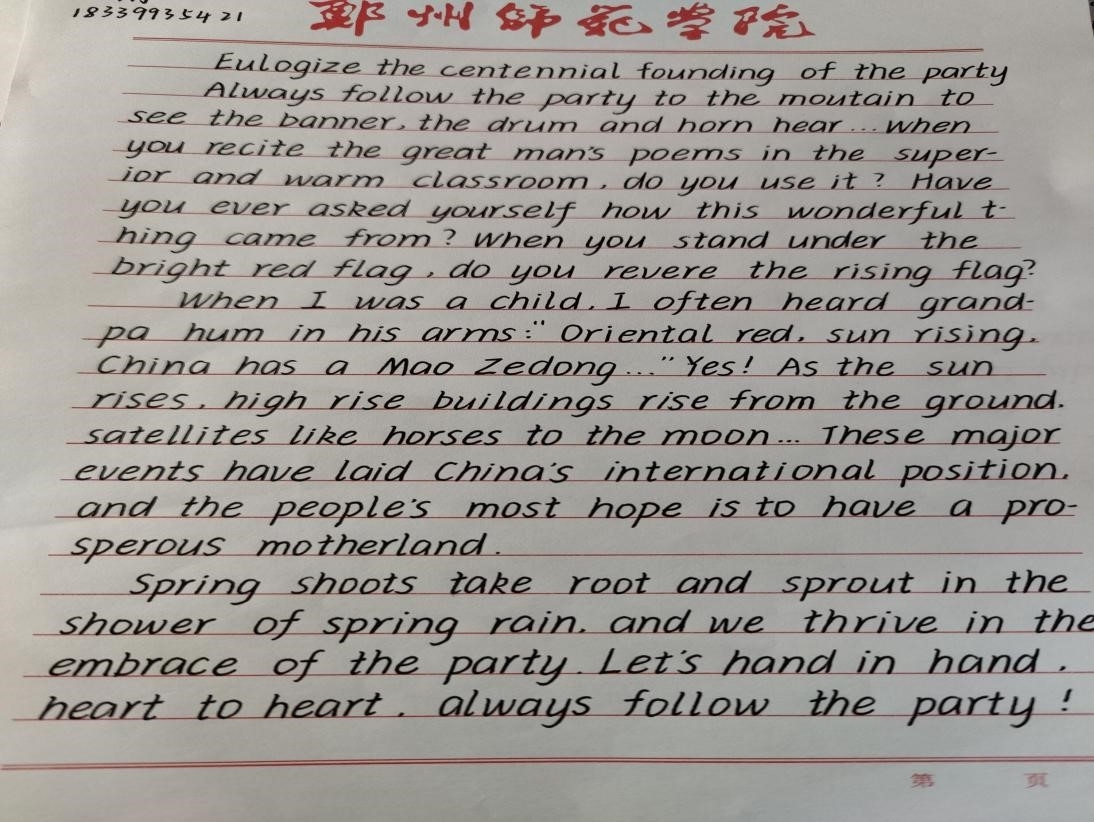 18339935421
鄭州師范学院
Eulogize the centennial founding of the party
Always follow the party to the moutain to
see the banner, the drum and horn hear... when
you recite the great man's poems in the super-
ior and warm classroom, do you use it? Have
you ever asked yourself how this wonderful t-
hing came from? When you stand under the
bright red flag, do you revere the rising flag?
When I was a child, I often heard grand-
pa hum in his arms: "Oriental red, sun rising,
China has a Mao Zedong..." Yes! As the sun
rises, high rise buildings rise from the ground,
satellites like horses to the moon... These major
events have laid China's international position,
and the people's most hope is to have a pro-
sperous motherland.
Spring shoots take root and sprout in the
shower of spring rain, and we thrive in the
embrace of the party. Let's hand in hand,
heart to heart, always follow the party!
第 页